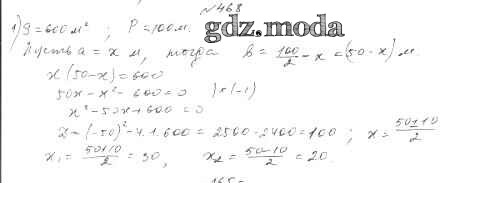 №468
1) S = 600 м² ; P = 100 м.
gdz.moda
Пусть a = x м, тогда b = 100/2 - x = (50 - x) м.
x(50-x) = 600
50x - x² - 600 = 0 ) × (-1)
x² - 50x + 600 = 0
D = (-50)² - 4·1·600 = 2500 - 2400 = 100 ; x = 50±10/2
x₁ = 50+10/2 = 30, x₂ = 50-10/2 = 20.